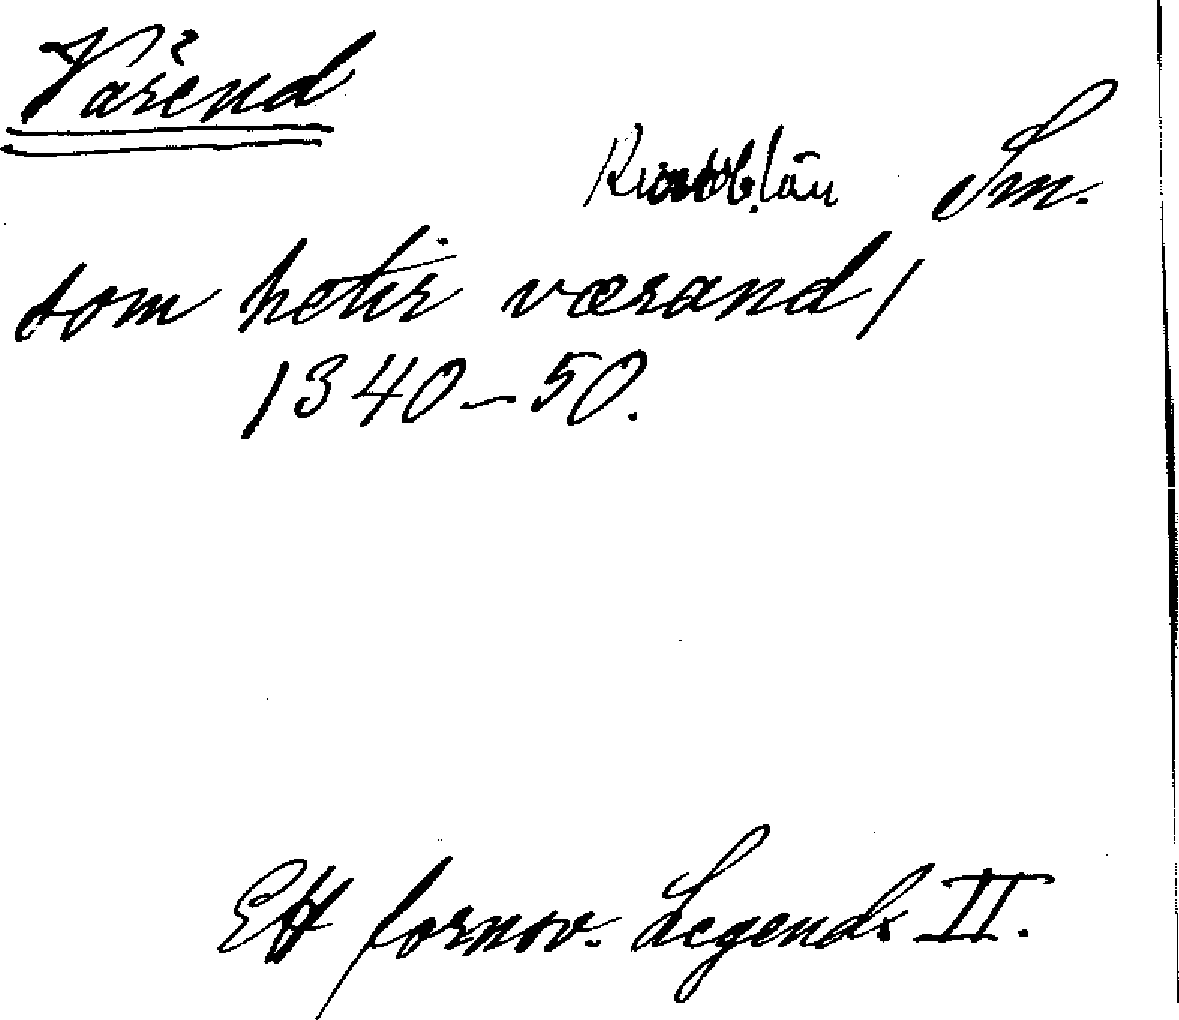 Värend
Kronob. län Sm.
som hetir værand,
1340-50.
Ett fornsv. Legend. II.